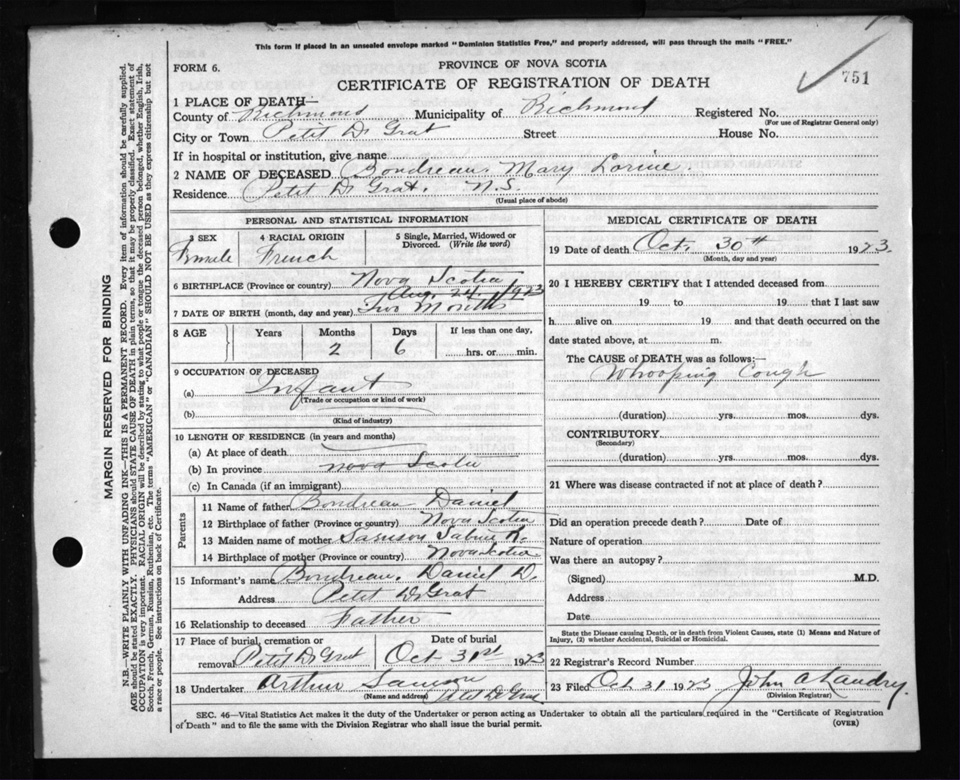 This form if placed in an unsealed envelope marked "Dominion Statistics Free," and properly addressed, will pass through the mails "FREE."
FORM 6.
PROVINCE OF NOVA SCOTIA
CERTIFICATE OF REGISTRATION OF DEATH
751
1 PLACE OF DEATH—
County of Richmond Municipality of Richmond Registered No.
(For use of Registrar General only)
City or Town Petit D Grat Street House No.
If in hospital or institution, give name
2 NAME OF DECEASED Boudreau Mary Lorine.
Residence Petit D Grat. N.S.
(Usual place of abode)
PERSONAL AND STATISTICAL INFORMATION
3 SEX 4 RACIAL ORIGIN 5 Single, Married, Widowed or Divorced. (Write the word)
Female French
6 BIRTHPLACE (Province or country) Nova Scotia
Aug. 24 1923
7 DATE OF BIRTH (month, day and year) Two Months
8 AGE Years Months Days If less than one day,
2 6 hrs. or min.
9 OCCUPATION OF DECEASED
(a) Infant
(Trade or occupation or kind of work)
(b)
(Kind of industry)
10 LENGTH OF RESIDENCE (in years and months)
(a) At place of death
(b) In province Nova Scotia
(c) In Canada (if an immigrant)
Parents
11 Name of father Boudreau Daniel
12 Birthplace of father (Province or country) Nova Scotia
13 Maiden name of mother Samson Sabine
14 Birthplace of mother (Province or country) Nova Scotia
15 Informant's name Boudreau. Daniel D.
Address Petit D Grat
16 Relationship to deceased Father
17 Place of burial, cremation or Date of burial
removal Petit D Grat Oct 31st 1923
18 Undertaker Arthur Samson
(Name and address) Petit D Grat
MEDICAL CERTIFICATE OF DEATH
19 Date of death Oct. 30th 1923.
(Month, day and year)
20 I HEREBY CERTIFY that I attended deceased from
19 to 19 that I last saw
h alive on 19 and that death occurred on the
date stated above, at m.
The CAUSE of DEATH was as follows:—
Whooping Cough
(duration) yrs. mos. dys.
CONTRIBUTORY
(Secondary)
(duration) yrs. mos. dys.
21 Where was disease contracted if not at place of death?
Did an operation precede death? Date of
Nature of operation
Was there an autopsy?
(Signed) M.D.
Address
Date
State the Disease causing Death, or in death from Violent Causes, state (1) Means and Nature of
Injury, (2) whether Accidental, Suicidal or Homicidal.
22 Registrar's Record Number
23 Filed Oct 31 1923 John A Landry.
(Division Registrar)
SEC. 46—Vital Statistics Act makes it the duty of the Undertaker or person acting as Undertaker to obtain all the particulars required in the "Certificate of Registration
of Death" and to file the same with the Division Registrar who shall issue the burial permit.
(OVER)
MARGIN RESERVED FOR BINDING
N.B.—WRITE PLAINLY WITH UNFADING INK—THIS IS A PERMANENT RECORD. Every item of information should be carefully supplied.
AGE should be stated EXACTLY. PHYSICIANS should STATE CAUSE OF DEATH in plain terms, so that it may be properly classified. Exact statement of
OCCUPATION is very important. RACIAL ORIGIN will be described by stating to what people or tongue the deceased person belonged, whether English, Irish,
Scotch, French, German, Russian, Ruthenian, etc. The terms "AMERICAN" or "CANADIAN" SHOULD NOT BE USED as they express citizenship but not
a race or people. See instructions on back of Certificate.